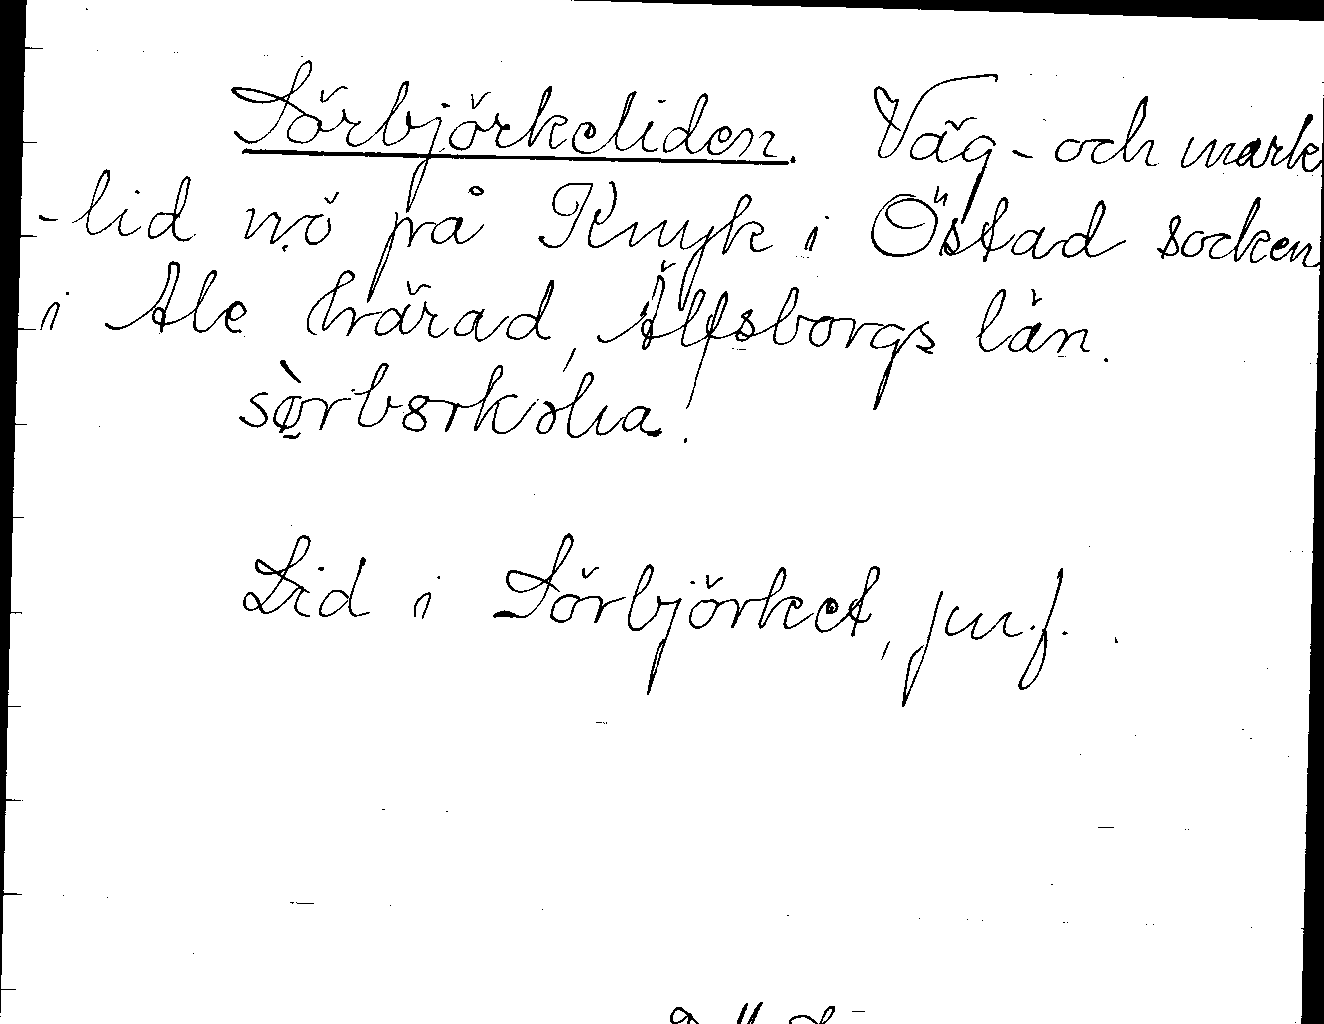 Sörbjörkeliden. Väg- och mark
-lid n.ö på Knyk i Östad socken
i Ale härad, Älfsborgs län.
Lid i Sörbjörket, jm.f.